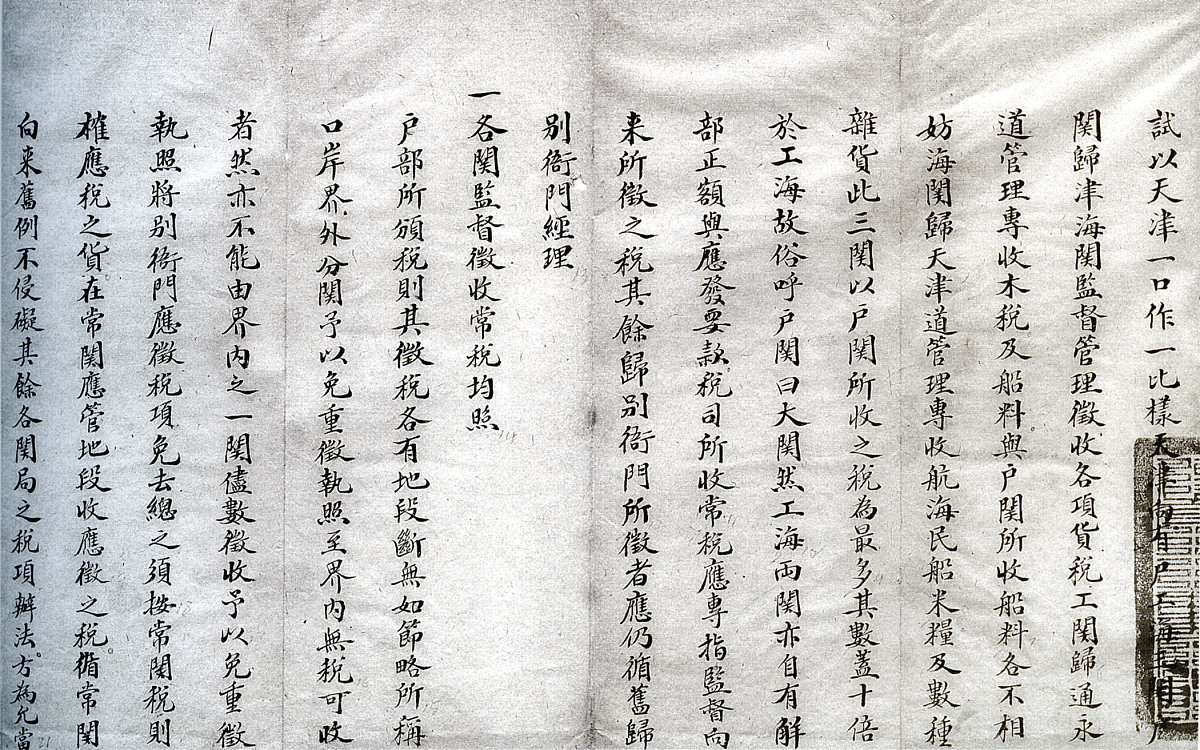 試以天津一口作一比樣天津向有戶工海三関戶
関歸津海関監督管理徵收各項貨稅工関歸通永
道管理專收木稅及船料與戶関所收船料各不相
妨海関歸天津道管理專收航海民船米糧及數種
雜貨此三関以戶関所收之稅為最多其數蓋十倍
於工海故俗呼戶関曰大関然工海両関亦自有解
部正額與應發要款稅司所收常稅應專指監督向
来所徵之稅其餘歸別衙門所徵者應仍循舊歸
別衙門經理
一各関監督徵收常稅均照
戶部所頒稅則其徵稅各有地段斷無如節略所稱
口岸界外分関予以免重徵執照至界內無稅可收
者然亦不能由界內之一関儘數徵收予以免重徵
執照將別衙門應徵稅項免去總之須按常関稅則
榷應稅之貨在常関應管地段收應徵之稅。循常関
向来舊例不侵礙其餘各関局之稅項辦法。方為允當